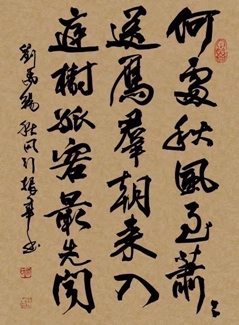 何處秋風至蕭々
送鴈羣朝來入
庭樹孤客最先聞
劉禹錫秋風引